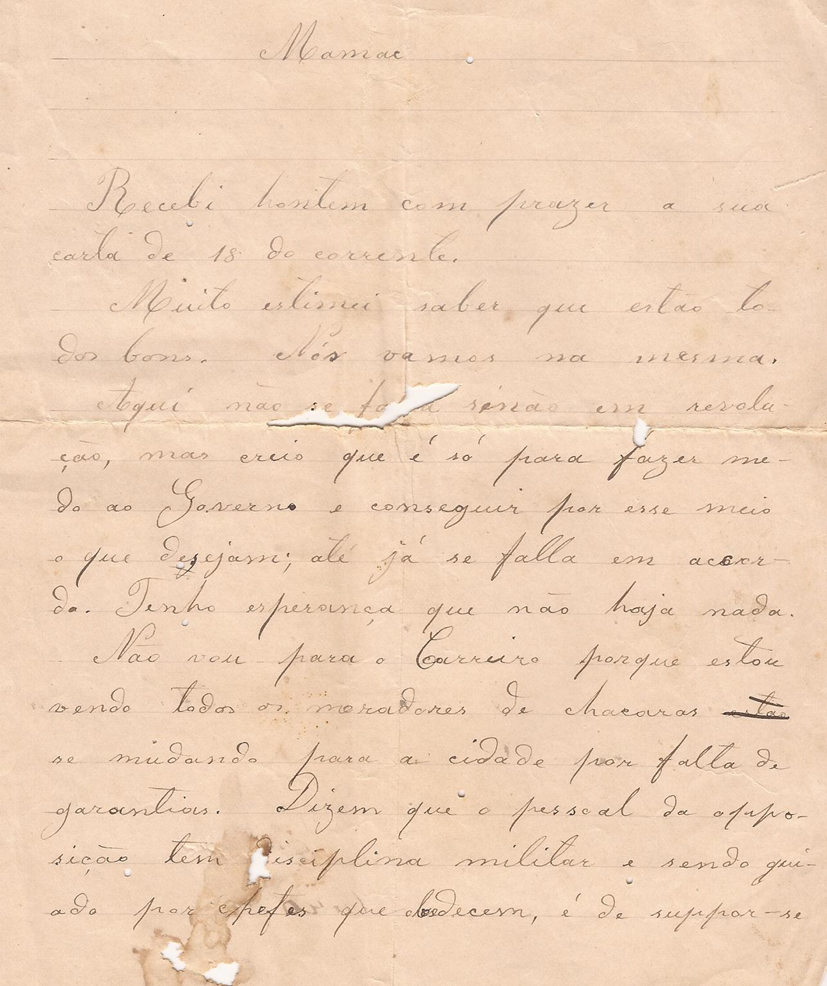 Mamae
Recebi hontem com prazer a sua
carta de 18 do corrente.
Muito estimei saber que estão to-
dos bons. Nós vamos na mesma.
Aqui não se falla sinão em revolu-
ção, mas creio que é só para fazer me-
do ao Governo e conseguir por esse meio
o que desejam; até já se falla em accor-
do. Tenho esperança que não haja nada.
Não vou para o Carreiro porque estou
vendo todos os moradores de chacaras
se mudando para a cidade por falta de
garantias. Dizem que o pessoal da oppo-
sição tem disciplina militar e sendo gui-
ado por chefes que obedecem, é de suppor-se